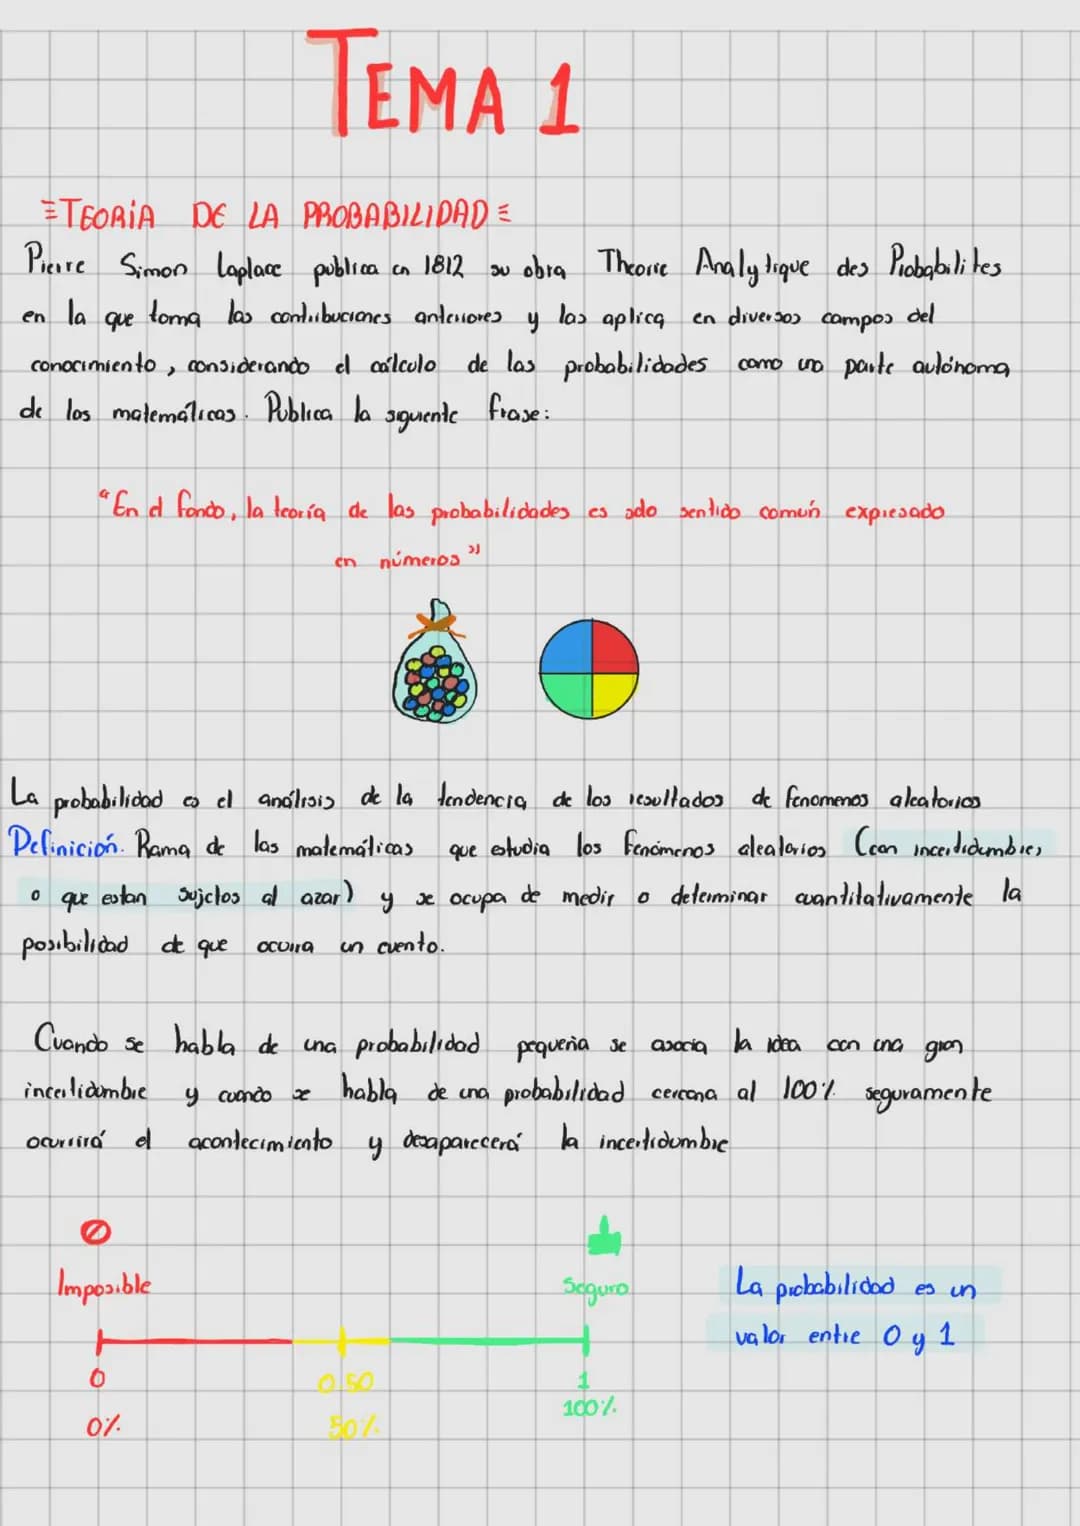 TEMA 1
TEORÍA DE LA PROBABILIDAD
Pierre Simon Laplace publica en 1812 su obra Theorie Analytique des Probabilites
en la que toma las contribuciones anteriores y las aplica en diversos campos del
conocimiento, considerando el cálculo de las probabilidades como una parte autónoma
de las matemáticas. Publica la siguiente frase:
"En el fondo, la teoría de las probabilidades es solo sentido común expresado
en números"
La probabilidad es el análisis de la tendencia de los resultados de fenomenos aleatorios
Definición. Rama de las matemáticas que estudia los fenómenos aleatorios (con incertidumbres
o que estan sujetos al azar) y se ocupa de medir o determinar cuantitativamente la
posibilidad de que ocurra un evento.
Cuando se habla de una probabilidad pequeña se asocia la idea con una gran
incertidumbre y cuando se habla de una probabilidad cercana al 100% seguramente
ocurrirá el acontecimiento y desaparecerá la incertidumbre
Imposible
Seguro
La probabilidad es un
valor entre 0 y 1
0
0.50
1
0%
50%
100%